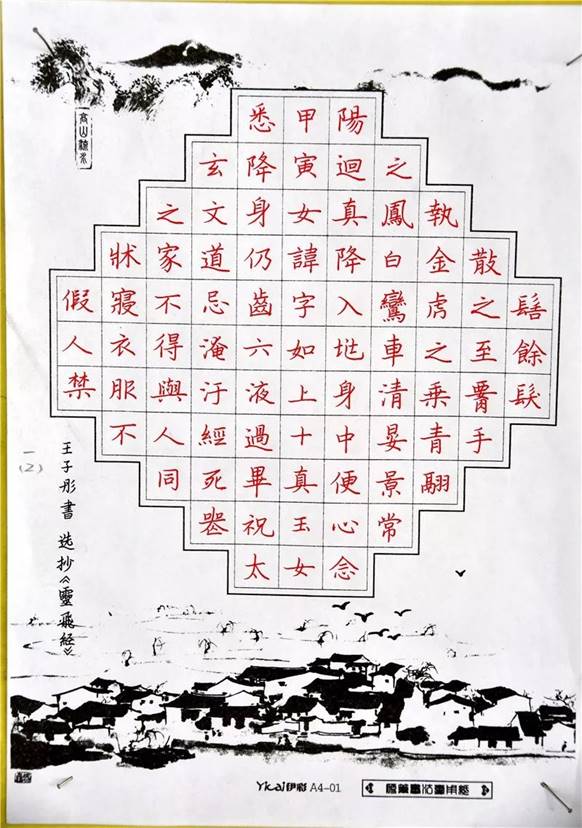 髻餘髮
散之至手
執金虎之乘青翮
之鳳白鸞車清晏景常
陽迴真降入地身中便心念
甲寅女諱字如上十真玉女
悉降身仍齒六液過畢祝太
玄文道忌淹汙經死喪
之家不得與人同
牀寢衣服不
假人禁
王子彤書 选抄《靈飛经》
一(2)
高山流水
Ykai伊彩 A4-01